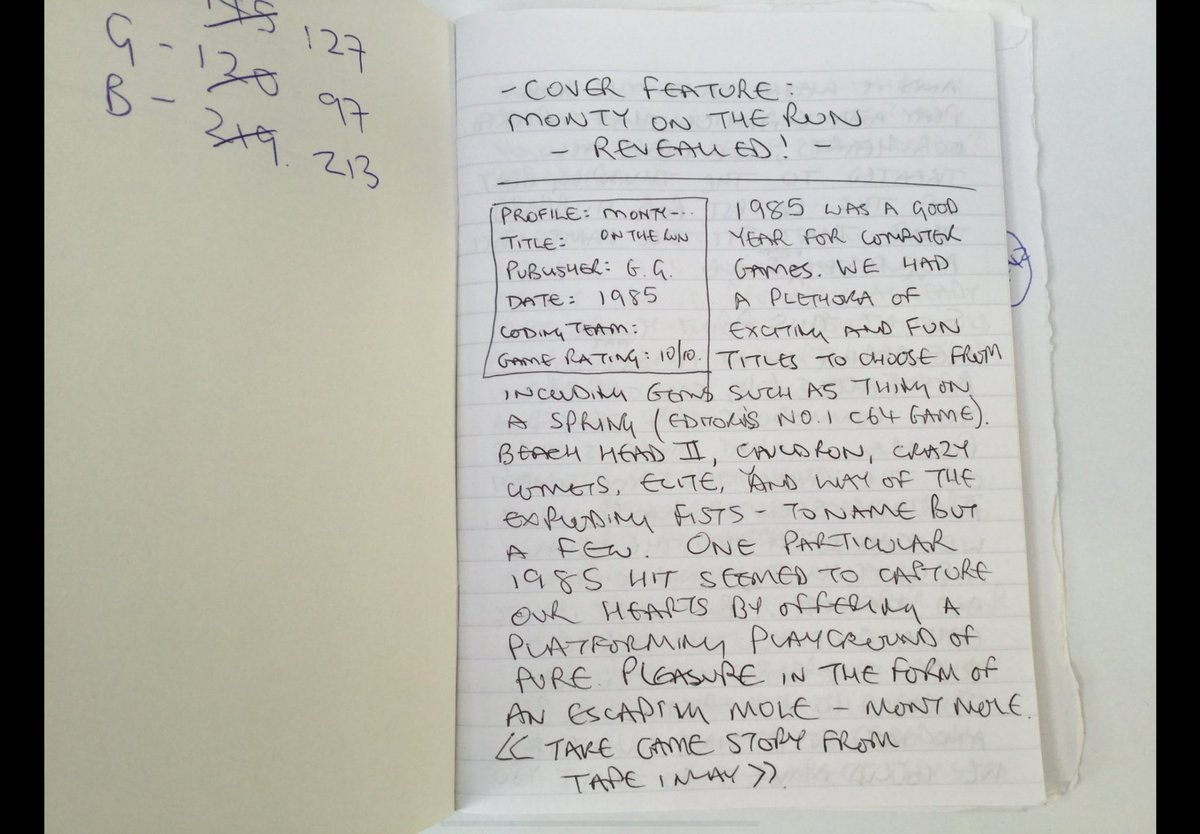 G - 127
B - 120 97
219. 213
- COVER FEATURE:
MONTY ON THE RUN
- REVEALED! -
PROFILE: MONTY-..
TITLE: ON THE RUN
PUBLISHER: G.G.
DATE: 1985
CODING TEAM:
GAME RATING: 10/10.
1985 WAS A GOOD
YEAR FOR COMPUTER
GAMES. WE HAD
A PLETHORA OF
EXCITING AND FUN
TITLES TO CHOOSE FROM
INCLUDING GEMS SUCH AS THING ON
A SPRING (EDITOR'S NO.1 C64 GAME).
BEACH HEAD II, CAULDRON, CRAZY
COMETS, ELITE, AND WAY OF THE
EXPLODING FISTS - TO NAME BUT
A FEW. ONE PARTICULAR
1985 HIT SEEMED TO CAPTURE
OUR HEARTS BY OFFERING A
PLATFORMING PLAYGROUND OF
PURE PLEASURE IN THE FORM OF
AN ESCAPING MOLE - MONT MOLE.
<< TAKE GAME STORY FROM
TAPE INLAY >>